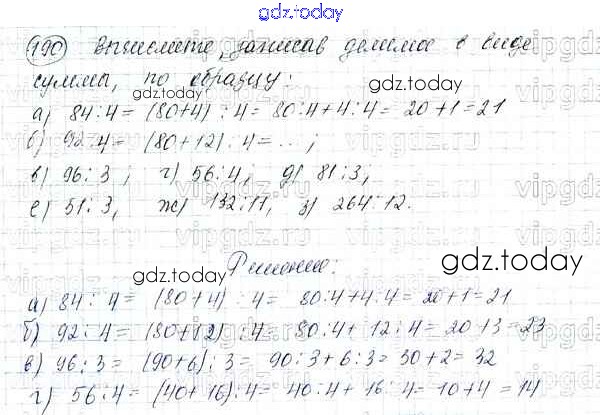 gdz.today
190 Вычислите, записав делимое в виде
суммы, по образцу:
gdz.today
а) 84:4= (80+4) :4= 80:4+4:4= 20+1=21
б) 92:4= (80+12) :4= ...;
в) 96:3; г) 56:4; д) 81:3;
е) 51:3, ж) 132:11, з) 264:12.
Решение:
gdz.today
gdz.today
а) 84:4= (80+4) :4= 80:4+4:4= 20+1=21
б) 92:4= (80+12) :4= 80:4+12:4= 20+3=23
в) 96:3= (90+6):3= 90:3+6:3= 30+2= 32
г) 56:4= (40+16):4= 40:4+16:4= 10+4=14